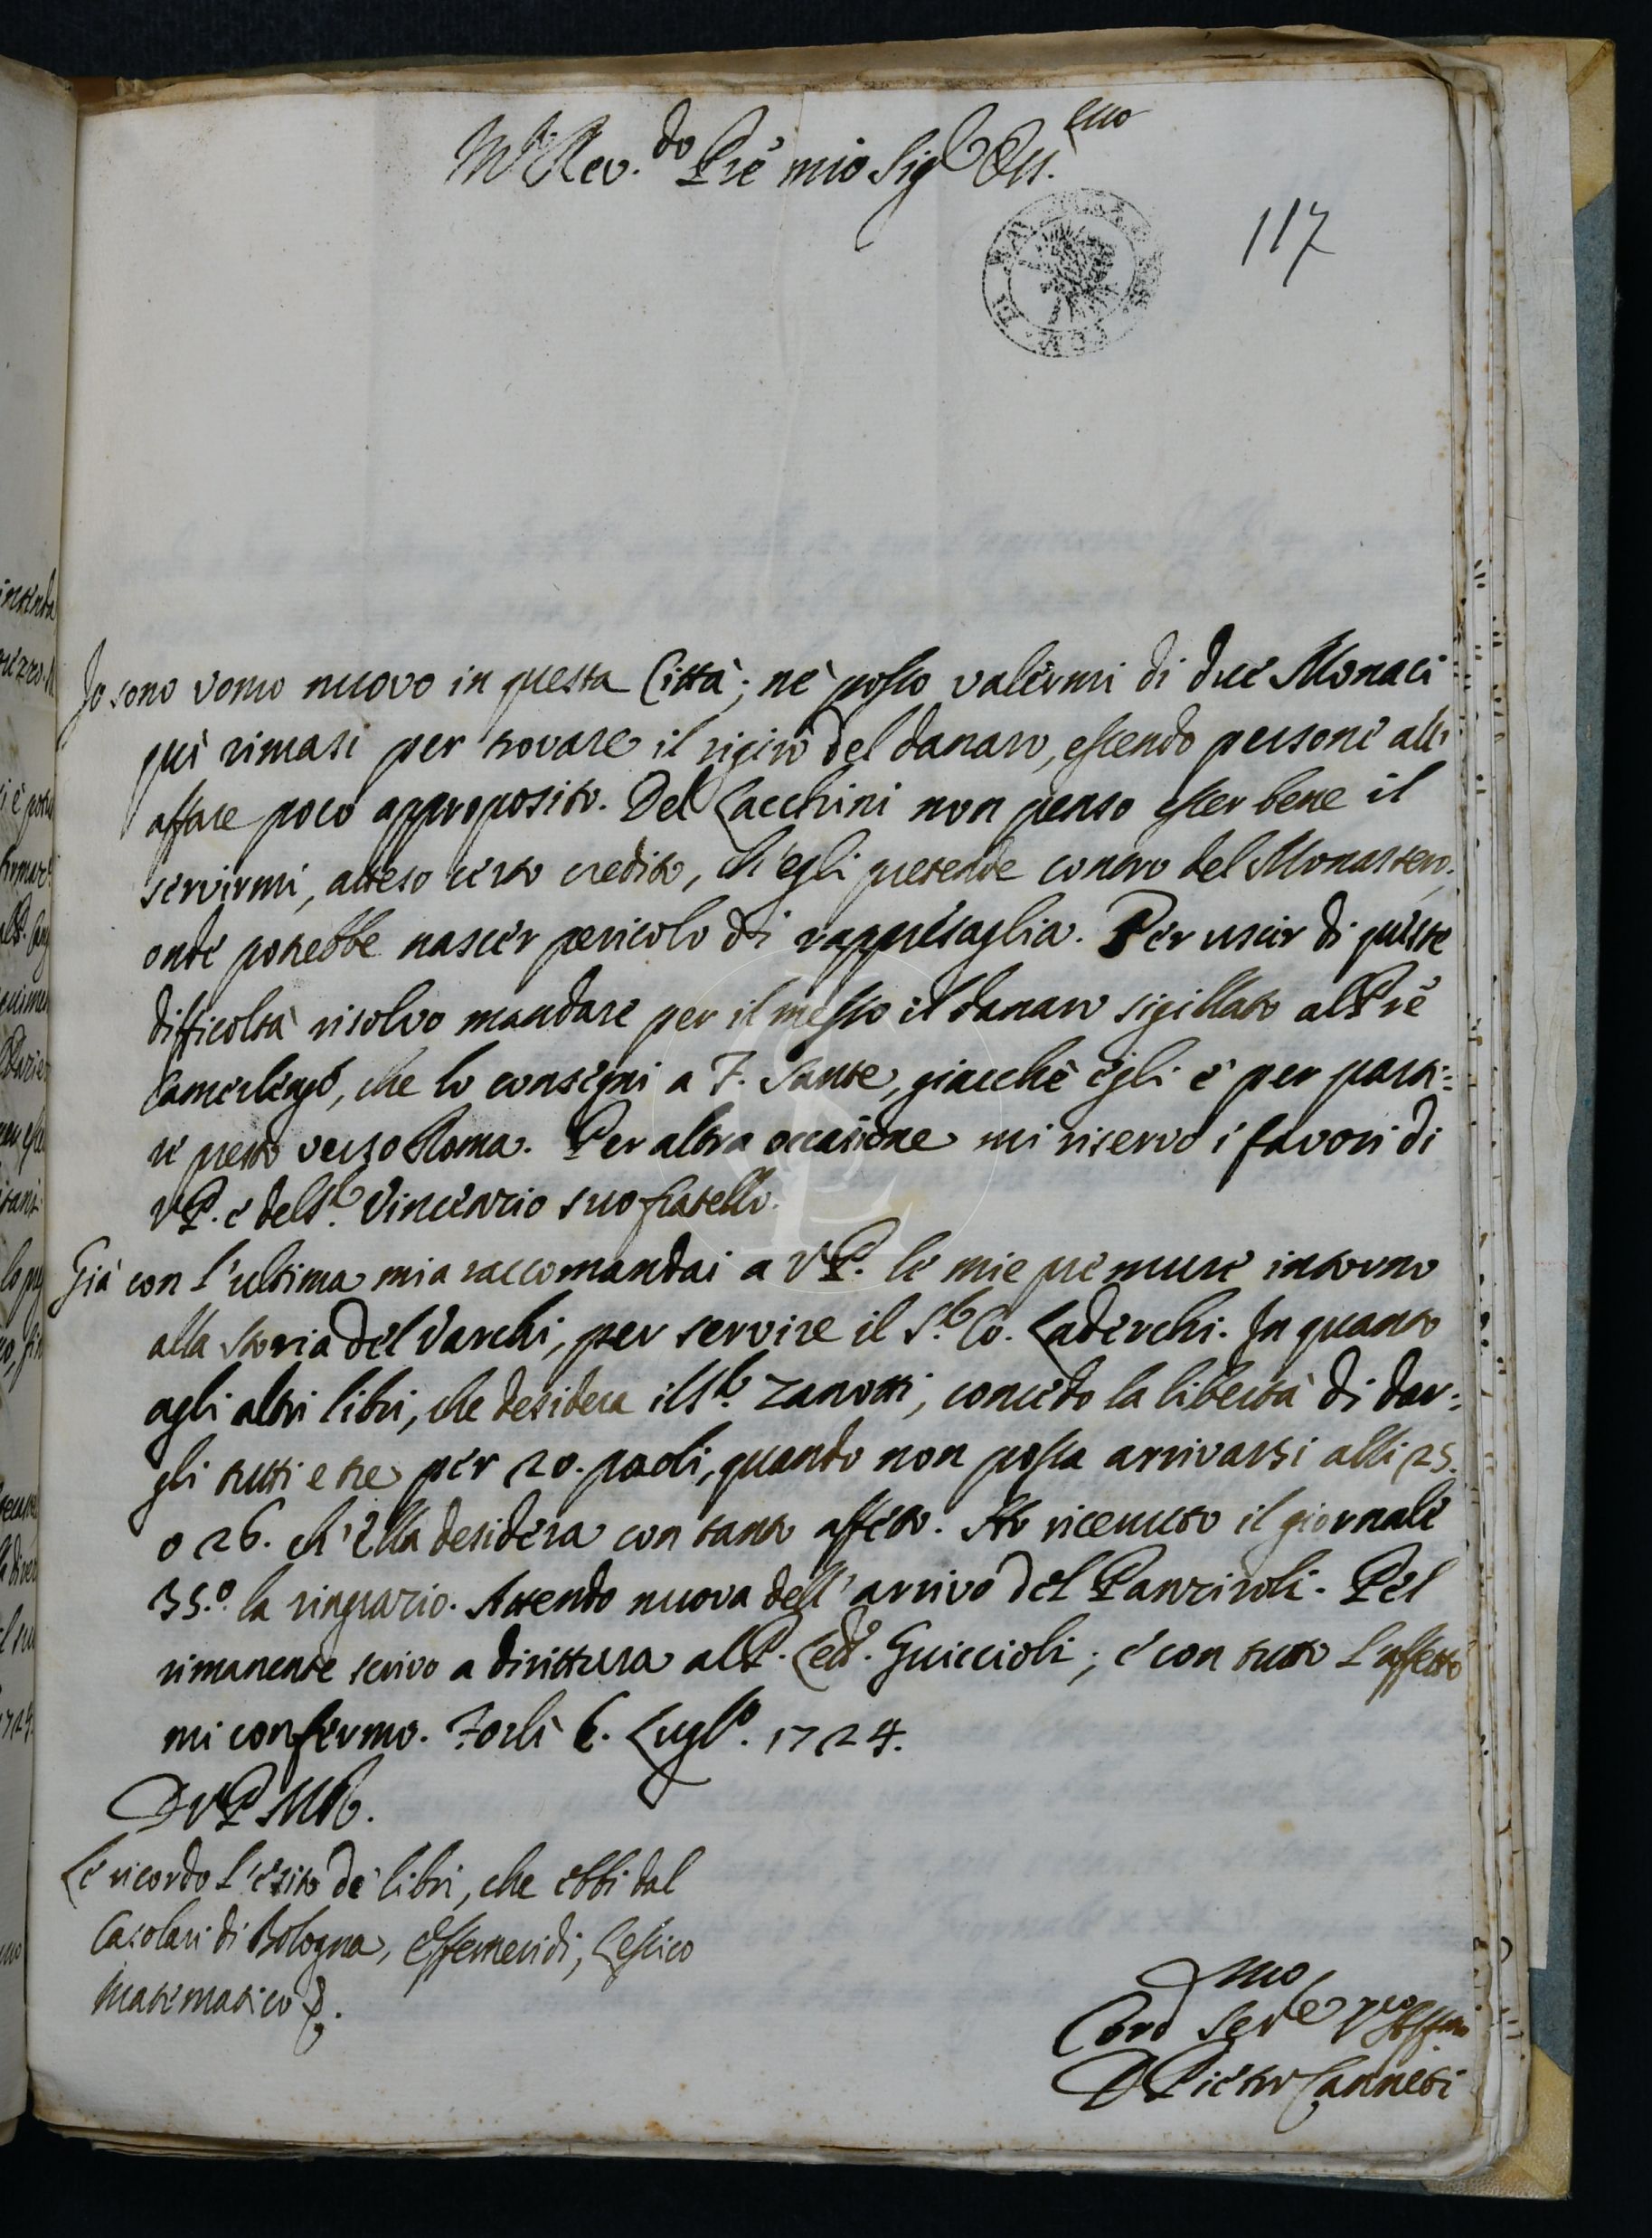 M. Rev.do Pre mio Sig.r Oss.mo
117
Io sono vomo nuovo in questa Città; nè posso valermi di due Monaci
quì rimasi per trovare il rigiro del danaro, essendo persone all'
affare poco approposito. Del Lacchini non penso esser bene il
servirmi, atteso certo credito, ch'egli pretende contro del Monastero;
onde potrebbe nascer pericolo di rappresaglia. Per uscir di queste
difficoltà risolvo mandare per il messo il danaro sigillato al Pre
Camerlengo, che lo consegni a F. Sante, giacchè egli è per parti-
re presto verso Roma. Per altra occasione mi riservo i favori di
VP. e del S.r Vincenzio suo fratello.
Già con l'ultima mia raccomandai a VP. le mie premure intorno
alla storia del Varchi, per servire il S.r Co. Laderchi. In quanto
agli altri libri, che desidera il S.r Zanotti, concedo la libertà di dar-
gli tutti e tre per 20. paoli, quando non possa arrivarsi alli 25.
o 26. ch'ella desidera con tanto affetto. Ho ricevuto il giornale
35.o la ringrazio. Attendo nuova dell'arrivo del Panziroli. Pel
rimanente scrivo a dirittura al P. Led. Guiccioli; e con tutto l'affetto
mi confermo. Forlì 6. Lugl.o 1724.
D VP MR.
Le ricordo l'esito de' libri, che ebbi dal
Casolari di Bologna, Effemeridi, Lessico
Matematico &.
Dmo
Ser.e
D Pietro Canneti